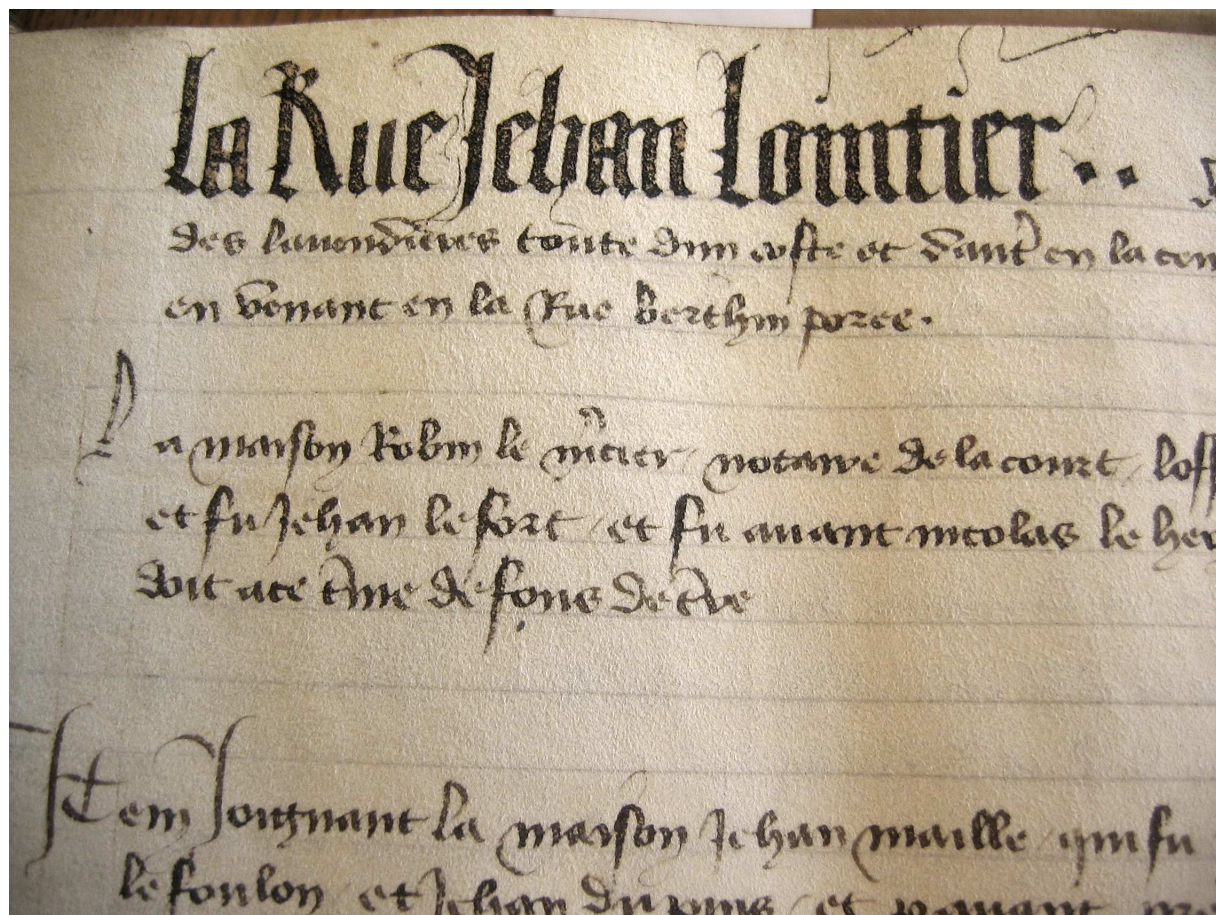 la Rue Jehan Lointier..
des lauendieres toute dun coste et daut̉ en la
en venant en la Rue berthin poree.
La maison Robin le m̉cier notaire de la court
et fu Jehan le fort et fu auant nicolas le
doit a ce t̉me de fons de t̉re
Item Joingnant la maison Jehan maille qui fu
le foulon et Jehan du puis et